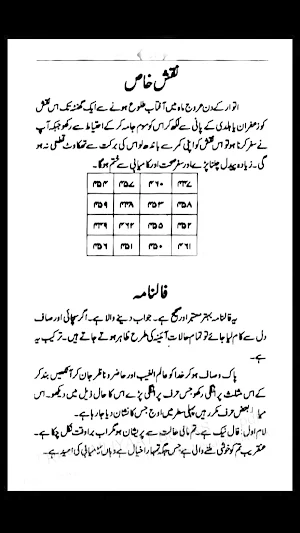 نقش خاص
اتوار کے دن عروج ماہ میں آفتاب طلوع ہونے سے ایک گھنٹہ تک اس نقش
کو زعفران یا ہلدی کے پانی سے لکھ کر اس کو موم جامہ کر کے احتیاط سے رکھو جبکہ آپ
نے سفر کرنا ہو تو اس نقش کو اپنی کمر سے باندھ لو اس کی برکت سے تھکاوٹ قطعی نہ ہو
گی۔ زیادہ پیدل چلنا پڑے اور سفر صحت اور کامیابی سے ختم ہو گا۔
۴۵۴ ۴۵۷ ۴۶۰ ۴۴۷
۴۵۹ ۴۴۸ ۴۵۳ ۴۵۸
۴۴۹ ۴۶۲ ۴۵۵ ۴۵۲
۴۵۶ ۴۵۱ ۴۵۰ ۴۶۱
فالنامہ
یہ فالنامہ بہتر مستمر اور صحیح ہے۔ جواب دینے والا ہے۔ اگر سچائی اور صاف
دل سے کام لیا جائے تو تمام حالات آئینہ کی طرح ظاہر ہوتے جاتے ہیں۔ ترکیب یہ
ہے۔
پاک و صاف ہو کر خدا کو عالم الغیب اور حاضر و ناظر جان کر آنکھیں بند کر
کے اس مثلث پر انگلی رکھو جس حرف پر انگلی پڑے اس کا حال ذیل میں دیکھو۔ اس
میں بعض حرف مکرر ہیں پہلی سطر میں اوج جس کا نشان دیا جا رہا ہے۔
لام اول: فال نیک ہے۔ تم مالی حالت سے پریشان ہو مگر اب برا وقت نکل چکا ہے۔
عنقریب تم کو خوشی ملنے والی ہے جس جگہ تمہارا خیال ہے وہاں کامیابی کی امید ہے۔